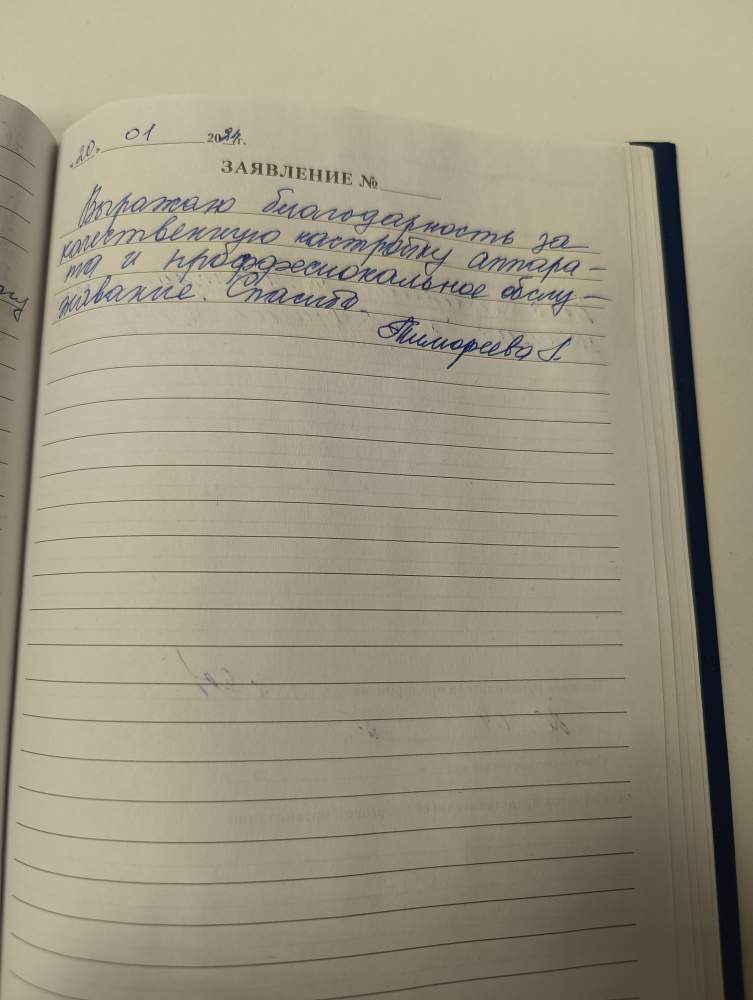 «20» 01 2024г.
ЗАЯВЛЕНИЕ №
Выражаю благодарность за
качественную настройку аппара-
та и проффессиональное обслу-
живание. Спасибо.